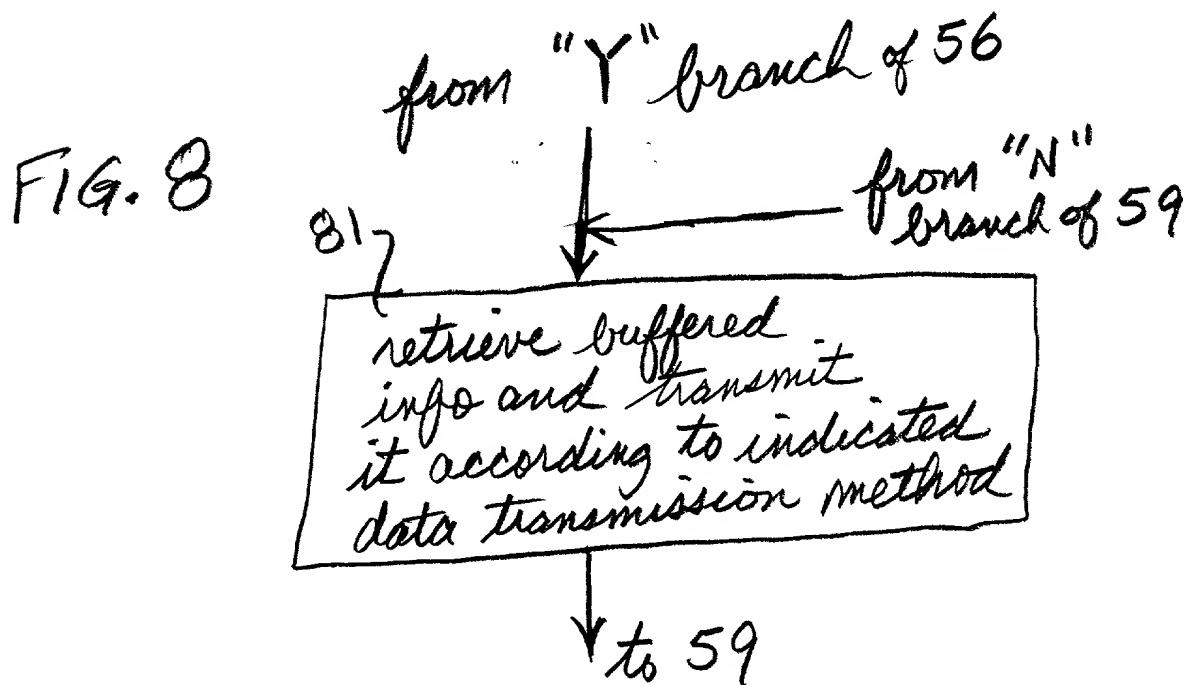 from "Y" branch of 56
FIG. 8
from "N"
branch of 59
81
retrieve buffered
info and transmit
it according to indicated
data transmission method
to 59